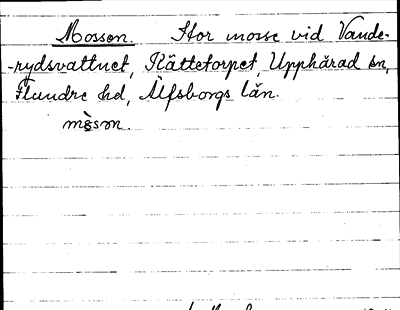 Mossen. Stor mosse vid Vande-
-rydsvattnet, Kättetorpet, Upphärad sn,
Flundre hd, Älfsborgs län.
mòsən.